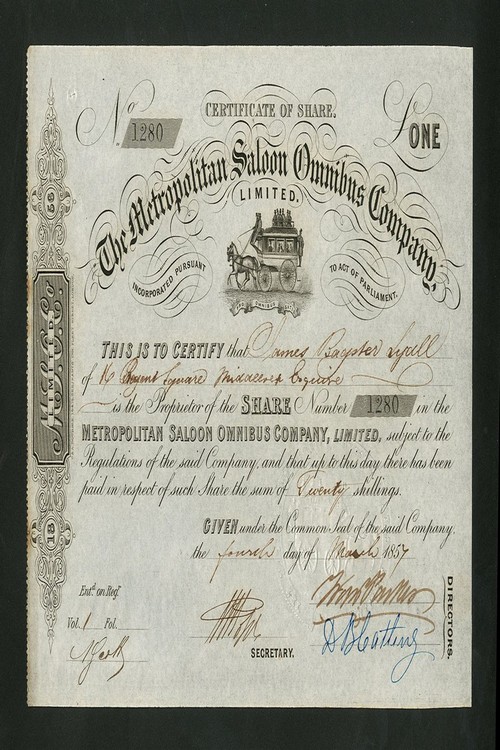 No 1280
CERTIFICATE OF SHARE.
£ ONE
The Metropolitan Saloon Omnibus Company,
LIMITED.
INCORPORATED PURSUANT
TO ACT OF PARLIAMENT.
OMNIBUS
THIS IS TO CERTIFY that James Bagster Lyall
of 16 Regent Square Middlesex Esquire
is the Proprietor of the SHARE Number 1280 in the
METROPOLITAN SALOON OMNIBUS COMPANY, LIMITED, subject to the
Regulations of the said Company, and that up to this day there has been
paid in respect of such Share the sum of Twenty shillings.
GIVEN under the Common Seal of the said Company.
the fourth day of March 1857
Entd. on Regr.
Vol. 1 Fol.
SECRETARY.
DIRECTORS.
M.S.O.Co
LIMITED